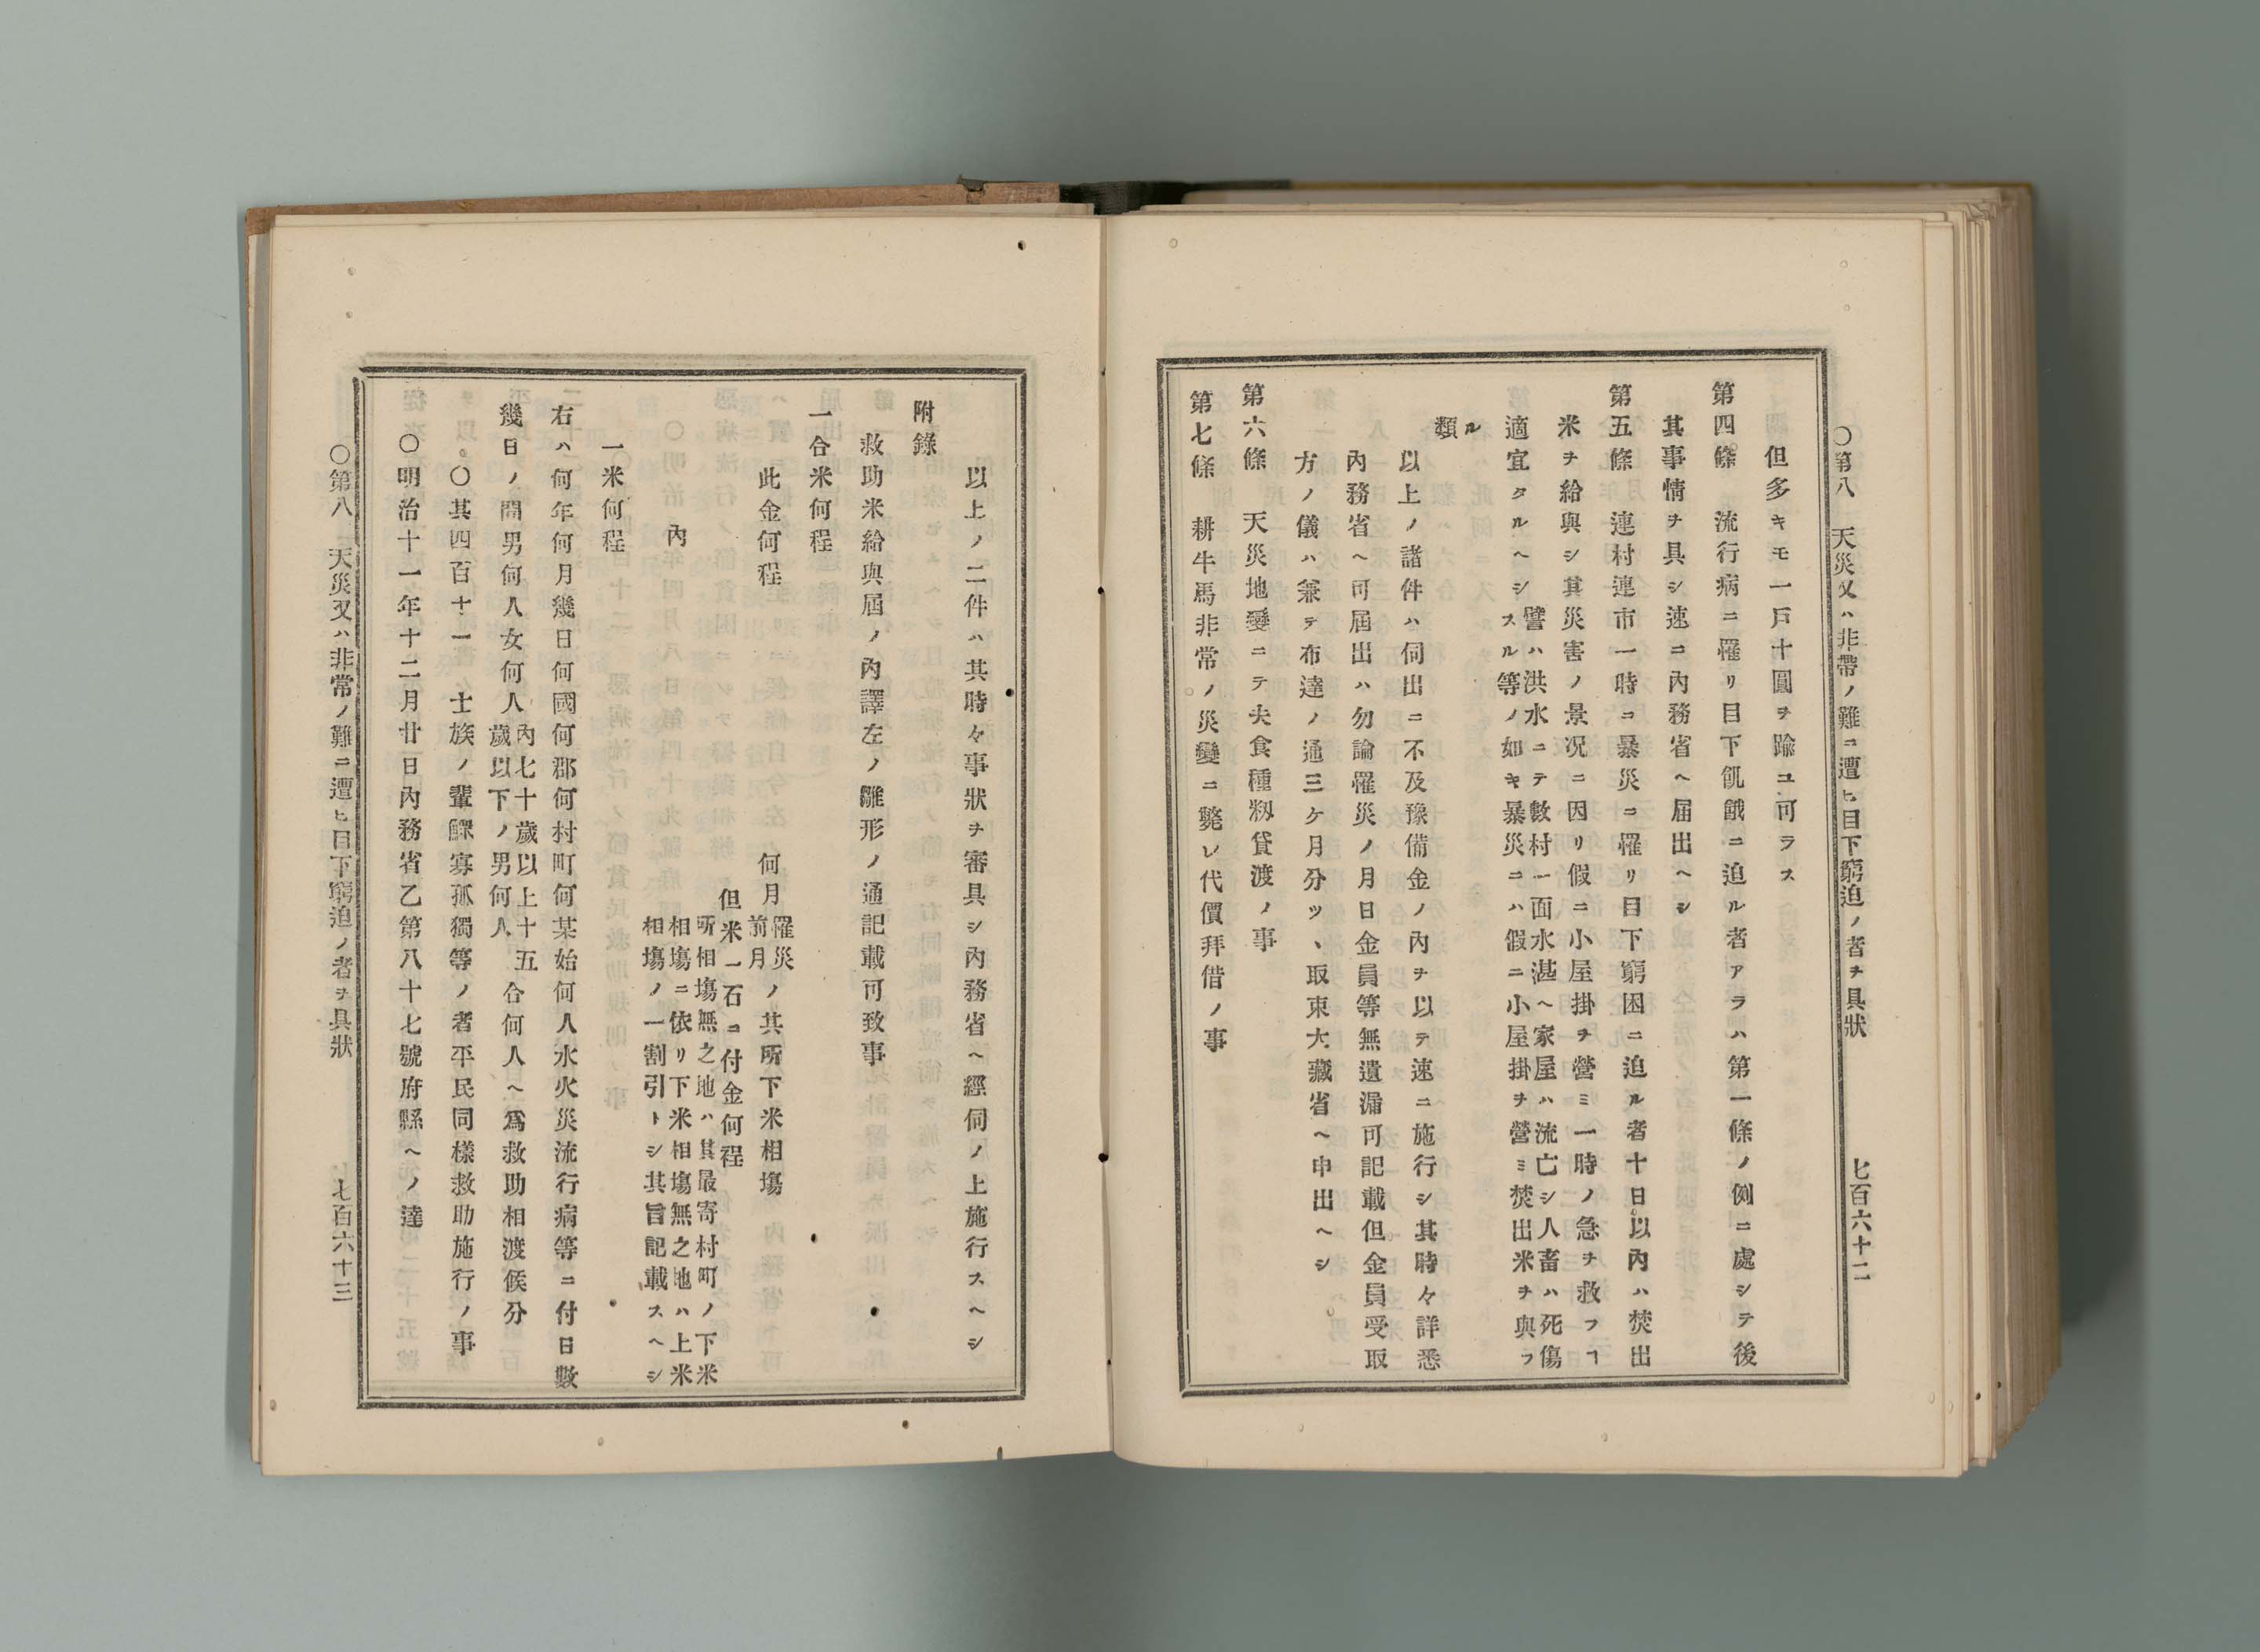 〇第八　天災又ハ非常ノ難ニ遭ヒ目下窮迫ノ者ヲ具狀　七百六十二
但多キモ一戶十圓ヲ踰ユ可ラス
第四條　流行病ニ罹リ目下飢餓ニ迫ル者アラハ第一條ノ例ニ處シテ後
其事情ヲ具シ速ニ內務省ヘ届出ヘシ
第五條　連村連市一時ニ暴災ニ罹リ目下窮困ニ迫ル者十日以內ハ焚出
米ヲ給與シ其災害ノ景况ニ因リ假ニ小屋掛ヲ營ミ一時ノ急ヲ救フヿ
適宜タルヘシ
譬ハ洪水ニテ數村一面水湛ヘ家屋ハ流亡シ人畜ハ死傷
スル等ノ如キ暴災ニハ假ニ小屋掛ヲ營ミ焚出米ヲ與フ
ル
類
以上ノ諸件ハ伺出ニ不及豫備金ノ內ヲ以テ速ニ施行シ其時々詳悉
內務省ヘ可屆出ハ勿論罹災ノ月日金員等無遺漏可記載但金員受取
方ノ儀ハ兼テ布達ノ通三ケ月分ツヽ取束大藏省ヘ申出ヘシ
第六條　天災地變ニテ夫食種籾貸渡ノ事
第七條　耕牛馬非常ノ災變ニ斃レ代價拜借ノ事
以上ノ二件ハ其時々事狀ヲ審具シ內務省ヘ經伺ノ上施行スヘシ
附錄
救助米給與屆ノ內譯左ノ雛形ノ通記載可致事
一合米何程
此金何程　何月
罹災
前月
ノ其所下米相塲
但米一石ニ付金何程
內
所相塲無之地ハ其最寄村町ノ下米
相塲ニ依リ下米相塲無之地ハ上米
相塲ノ一割引トシ其旨記載スヘシ
一米何程
右ハ何年何月幾日何國何郡何村町何某始何人水火災流行病等ニ付日數
幾日ノ間男何人女何人
內七十歲以上十五
歲以下ノ男何人
合何人ヘ爲救助相渡候分
〇其四百十一　士族ノ輩鰥寡孤獨等ノ者平民同樣救助施行ノ事
〇明治十一年十二月廿日內務省乙第八十七號府縣ヘノ達
〇第八　天災又ハ非常ノ難ニ遭ヒ目下窮迫ノ者ヲ具狀　七百六十三